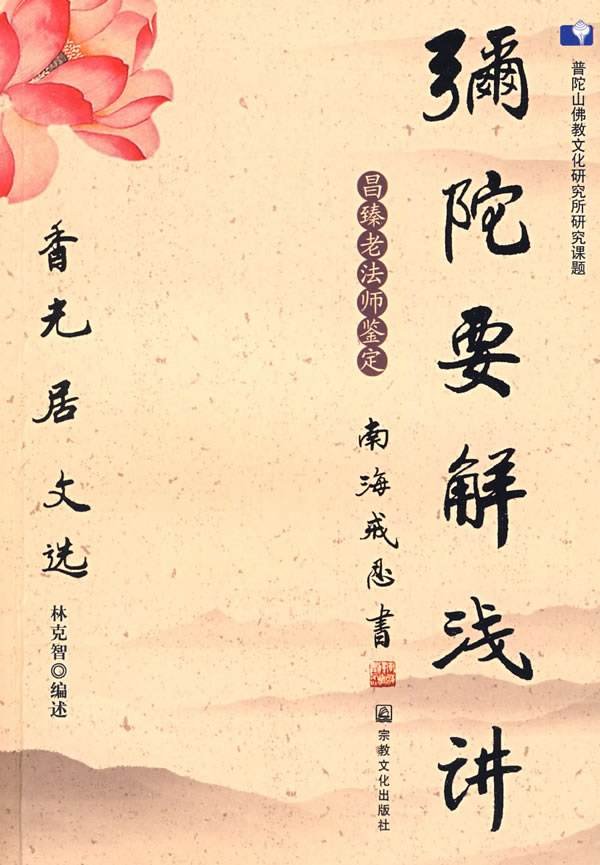 普陀山佛教文化研究所研究课题
彌陀要解浅讲
昌臻老法师鉴定
南海戒忍書
宗教文化出版社
香光居文选
林克智◎编述